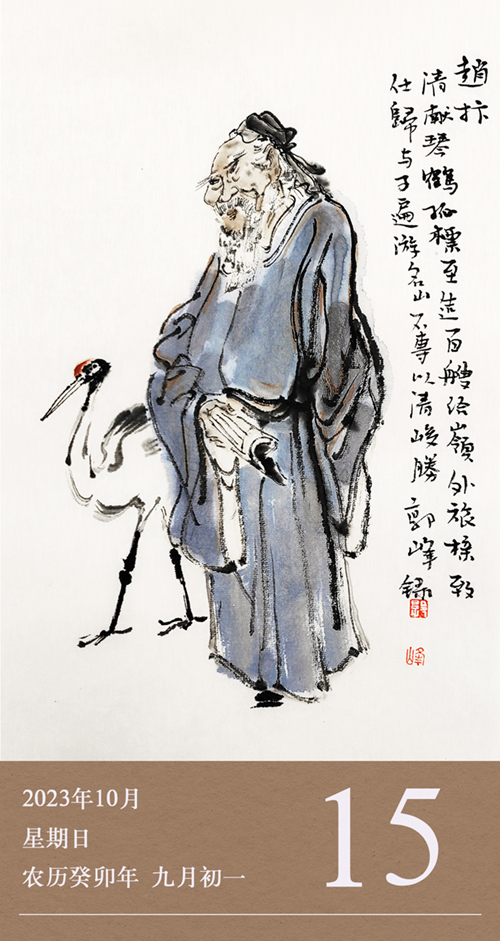 趙抃
清獻琴鶴孤標至造百艘給嶺外旅櫬致
仕歸与子遍游名山不專以清峻勝 郭峰録
峰
2023年10月
星期日
农历癸卯年 九月初一
15